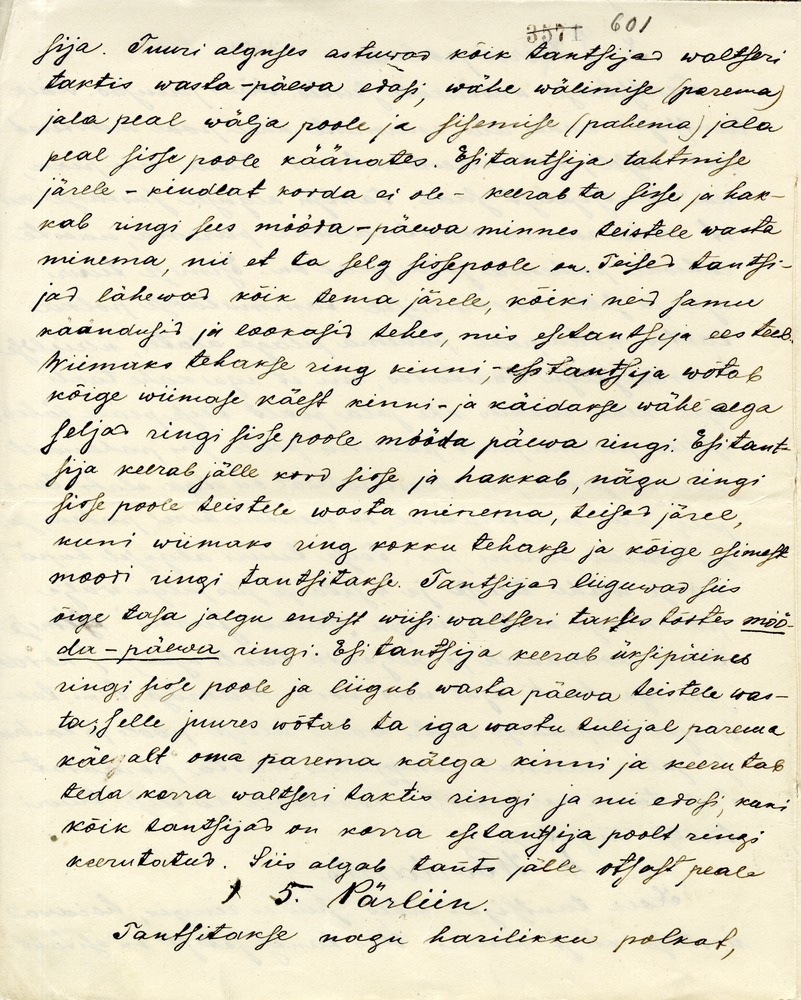 3571 601
sija. Tuuri alguses astuwad kõik tantsijad waltseri
taktis wasta-päewa edasi, wähe wälimise (parema)
jala peal wälja poole ja sisemise (pahema) jala
peal sisse poole käänates. Esitantsija tahtmise
järele - kindlat korda ei ole - keerab ta sisse ja hak-
kab ringi sees mööda-päewa minnes teistele wasta
minema, nii et ta selg sissepoole on. Teised tantsi-
jad lähewad kõik tema järele, kõiki neid samu
käändusid ja lookasid tehes, mis esitantsija ees teeb.
Wiimaks tehakse ring kinni, - esitantsija wõtab
kõige wiimase käest kinni - ja käidakse wähe aega
seljad ringi sisse poole mööda päewa ringi. Esitant-
sija keerab jälle kord sisse ja hakkab, nägu ringi
sisse poole teistele wasta minema, teised järel,
kuni wiimaks ring kokku tehakse ja kõige esimest
moodi ringi tantsitakse. Tantsijad liiguwad siis
õige tasa jalgu endist wiisi waltseri taktis tõstes möö-
da-päewa ringi. Esitantsija keerab üksipäines
ringi sisse poole ja liigub wasta päewa teistele was-
ta; selle juures wõtab ta iga wastu tulijal parema
käe alt oma parema käega kinni ja keerutab
teda korra waltseri taktis ringi ja nii edasi, kuni
kõik tantsijad on korra esitantsija poolt ringi
keerutatud. Siis algab tants jälle otsast peale
5. Pärliin.
Tantsitakse nagu harilikku polkat,